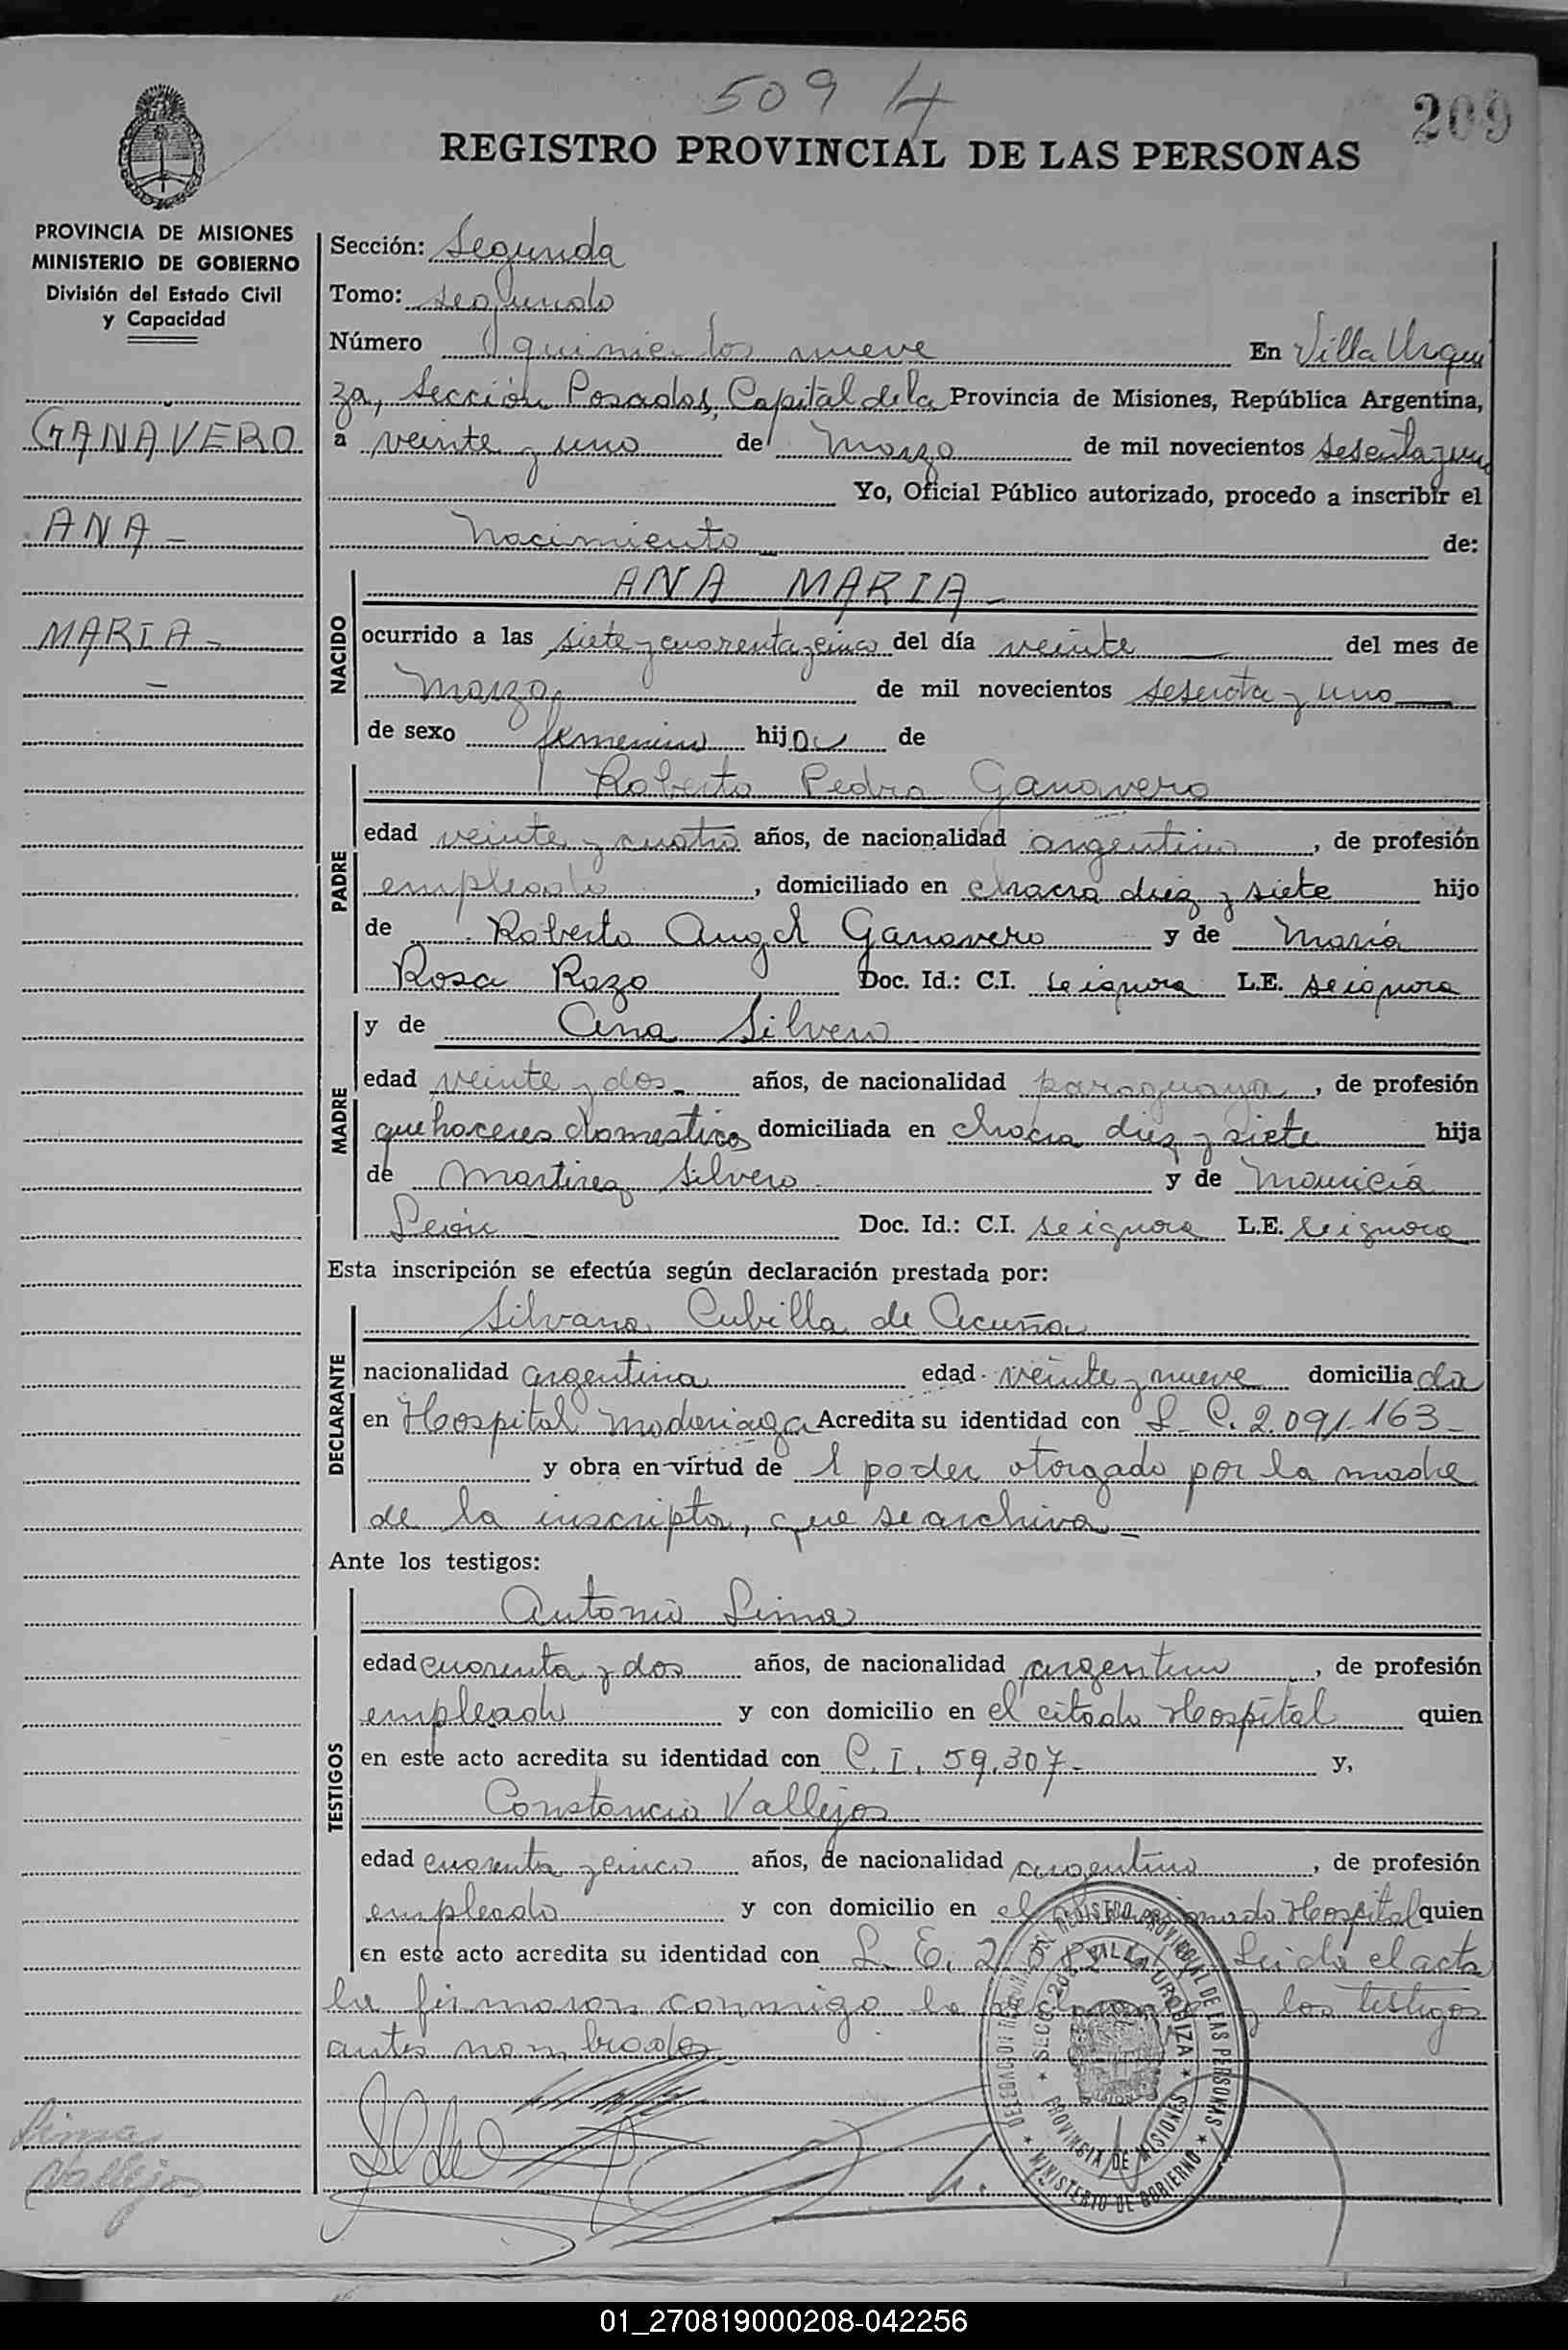 509 4
209
REGISTRO PROVINCIAL DE LAS PERSONAS
PROVINCIA DE MISIONES
MINISTERIO DE GOBIERNO
División del Estado Civil
y Capacidad
GANAVERO
ANA -
MARIA -
Sección: Segunda
Tomo: segundo
Número quinientos nueve En Villa Urqui
za, Sección Posadas, Capital de la Provincia de Misiones, República Argentina,
a veinte y uno de Marzo de mil novecientos sesenta y uno
Yo, Oficial Público autorizado, procedo a inscribir el
Nacimiento de:
NACIDO
ANA MARIA -
ocurrido a las siete y cuarenta y cinco del día veinte del mes de
Marzo de mil novecientos sesenta y uno
de sexo femenino hija de
PADRE
Roberto Pedro Ganavero
edad veinte y cuatro años, de nacionalidad argentino, de profesión
empleado, domiciliado en chacra diez y siete hijo
de Roberto Angel Ganavero y de María
Rosa Razo Doc. Id.: C.I. se ignora L.E. se ignora
MADRE
y de Ana Silvero
edad veinte y dos- años, de nacionalidad paraguaya, de profesión
quehaceres domesticos domiciliada en chacra diez y siete hija
de Martinez Silvero y de Mauricia
León Doc. Id.: C.I. se ignora L.E. se ignora
Esta inscripción se efectúa según declaración prestada por:
DECLARANTE
Silvana Cubilla de Acuña
nacionalidad argentina edad veinte y nueve domiciliada
en Hospital Madariaga Acredita su identidad con L. C. 2.091.163-
y obra en virtud de 1 poder otorgado por la madre
de la inscripta, que se archiva -
Ante los testigos:
TESTIGOS
Antonio Lima
edad cuarenta y dos años, de nacionalidad argentino, de profesión
empleado y con domicilio en el citado Hospital quien
en este acto acredita su identidad con C. I. 59.307- y,
Constancio Vallejos
edad cuarenta y cinco años, de nacionalidad argentino, de profesión
empleado y con domicilio en el Hospital quien
en este acto acredita su identidad con L. E. Leida el acta
la firmaron conmigo la declarante y los testigos
antes nombrados
Lima
Vallejos
DELEGACION REGISTRO PROVINCIAL DE LAS PERSONAS
* MINISTERIO DE GOBIERNO *
SECC. 2da VILLA URQUIZA
* PROVINCIA DE MISIONES *
01_270819000208-042256